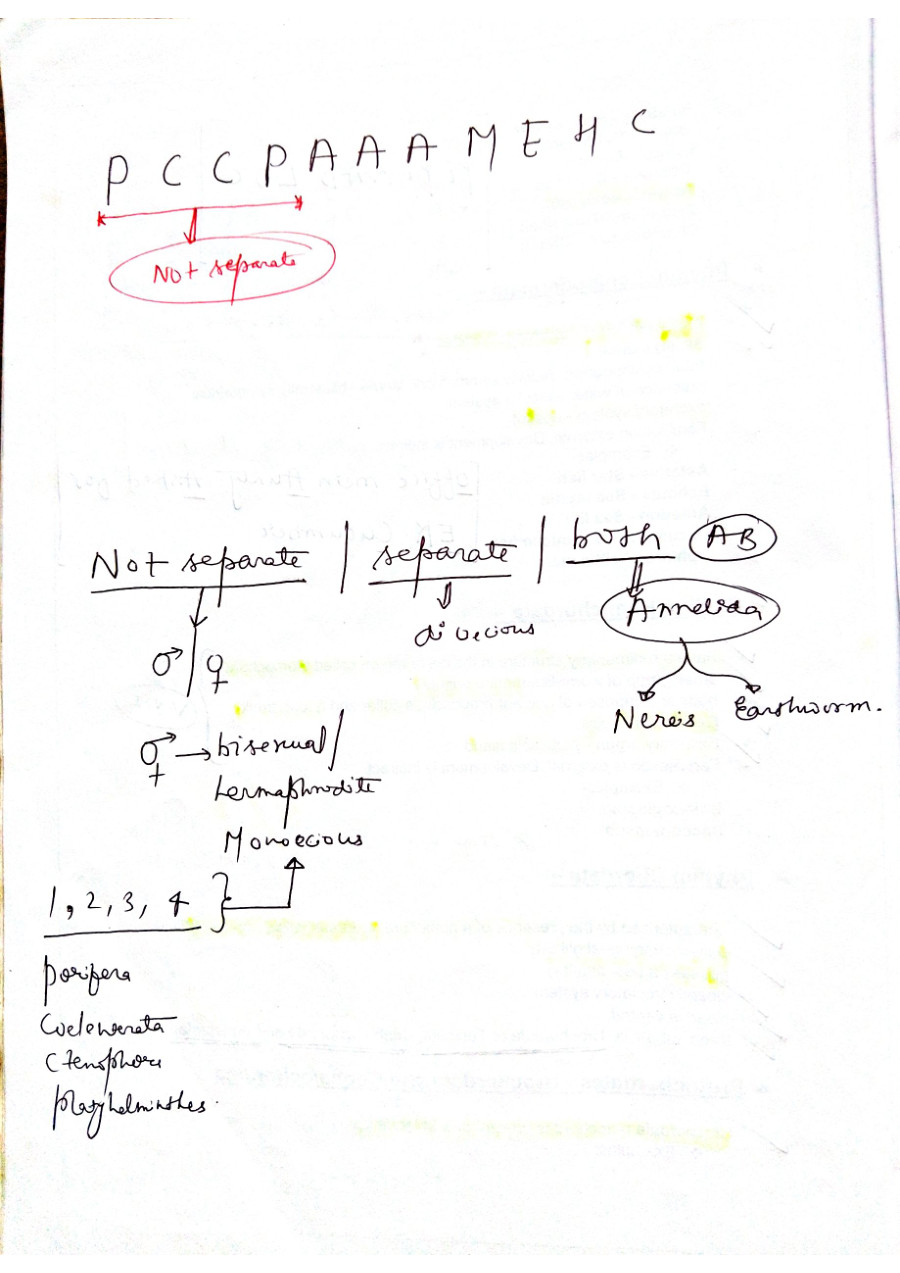 P C C P A A A M E H C
Not separate
Not separate | separate | both AB
dioecious
Annelida
♂ / ♀
Nereis Earthworm.
⚥ → bisexual /
hermaphrodite
Monoecious
1, 2, 3, 4
porifera
Coelenterata
Ctenophora
platyhelminthes.